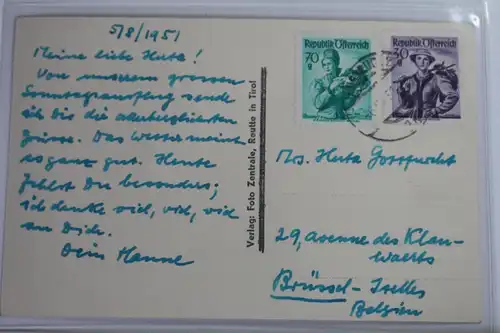 5/8/1951
Meine liebe Herta!
Von unserem grossen
Sonntagsausflug sende
ich Dir die allerherzlichsten
Grüsse. Das Wetter meint
so ganz gut. Heute
fehlst Du besonders;
ich denke viel, viel, viel
an Dich.
Dein Hanne
Verlag: Foto Zentrale, Reutte in Tirol
70
g
Republik Österreich
30
Republik Österreich
Mrs. Herta
29, avenue des Klau-
waerts
Brüssel - Ixelles
Belgien